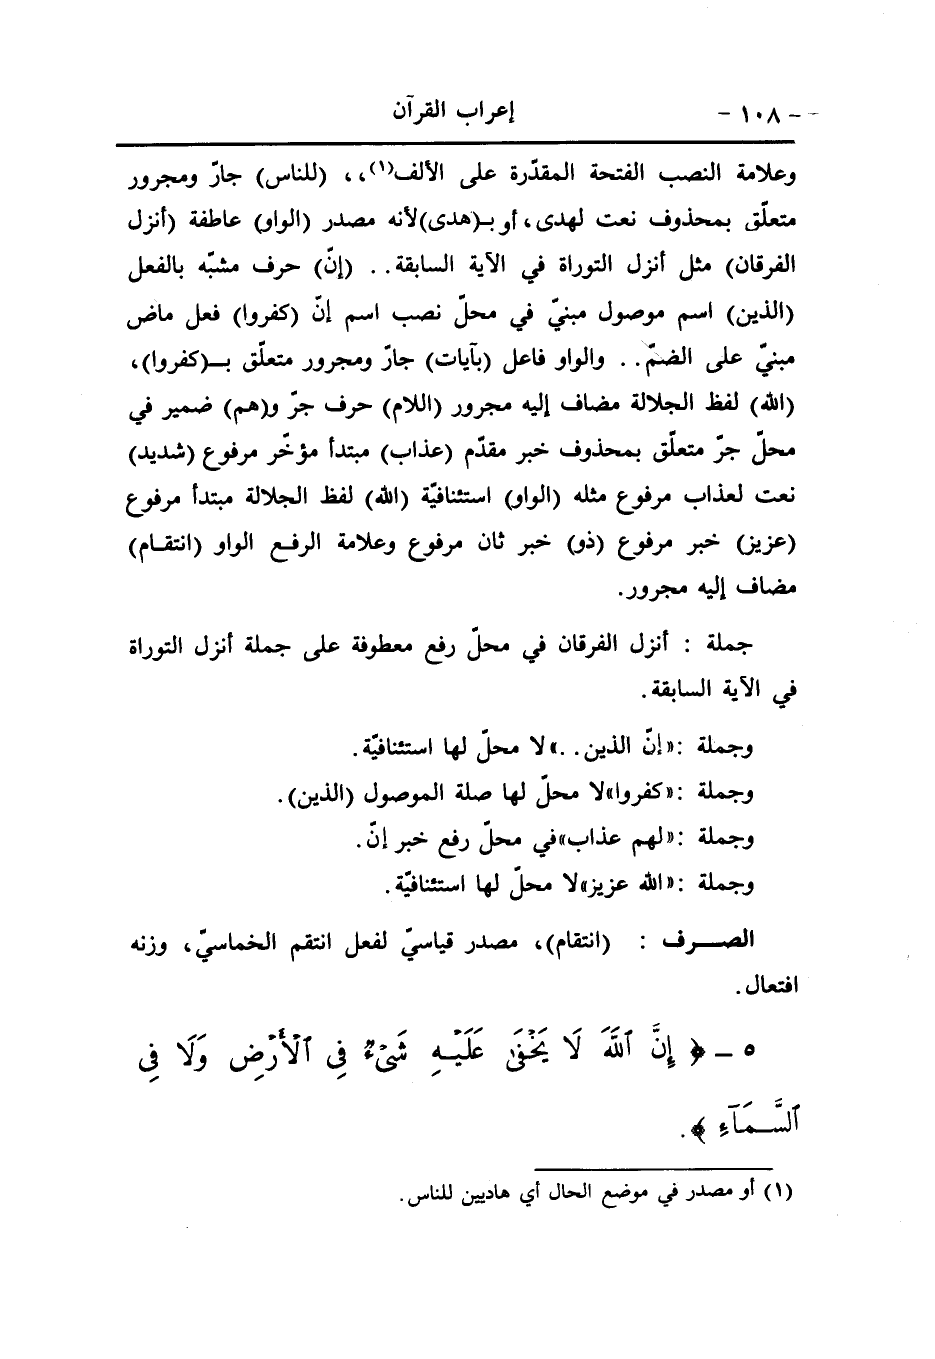 - ١٠٨ - إعراب القرآن
وعلامة النصب الفتحة المقدّرة على الألف(١)،، (للناس) جارّ ومجرور
متعلّق بمحذوف نعت لهدى، أو بـ(هدى)لأنه مصدر (الواو) عاطفة (أنزل
الفرقان) مثل أنزل التوراة في الآية السابقة.. (إنّ) حرف مشبّه بالفعل
(الذين) اسم موصول مبنيّ في محلّ نصب اسم إنّ (كفروا) فعل ماض
مبنيّ على الضمّ.. والواو فاعل (بآيات) جارّ ومجرور متعلّق بـ(كفروا)،
(الله) لفظ الجلالة مضاف إليه مجرور (اللام) حرف جرّ و(هم) ضمير في
محلّ جرّ متعلّق بمحذوف خبر مقدّم (عذاب) مبتدأ مؤخّر مرفوع (شديد)
نعت لعذاب مرفوع مثله (الواو) استئنافيّة (الله) لفظ الجلالة مبتدأ مرفوع
(عزيز) خبر مرفوع (ذو) خبر ثان مرفوع وعلامة الرفع الواو (انتقام)
مضاف إليه مجرور.
جملة : أنزل الفرقان في محلّ رفع معطوفة على جملة أنزل التوراة
في الآية السابقة.
وجملة :«إنّ الذين..»لا محلّ لها استئنافيّة.
وجملة :«كفروا»لا محلّ لها صلة الموصول (الذين).
وجملة :«لهم عذاب»في محلّ رفع خبر إنّ.
وجملة :«الله عزيز»لا محلّ لها استئنافيّة.
الصرف : (انتقام)، مصدر قياسيّ لفعل انتقم الخماسيّ، وزنه
افتعال.
٥ - ﴿ إِنَّ ٱللَّهَ لَا يَخْفَىٰ عَلَيْهِ شَىْءٌ فِى ٱلْأَرْضِ وَلَا فِى
ٱلسَّمَآءِ ﴾.
(١) أو مصدر في موضع الحال أي هاديين للناس.